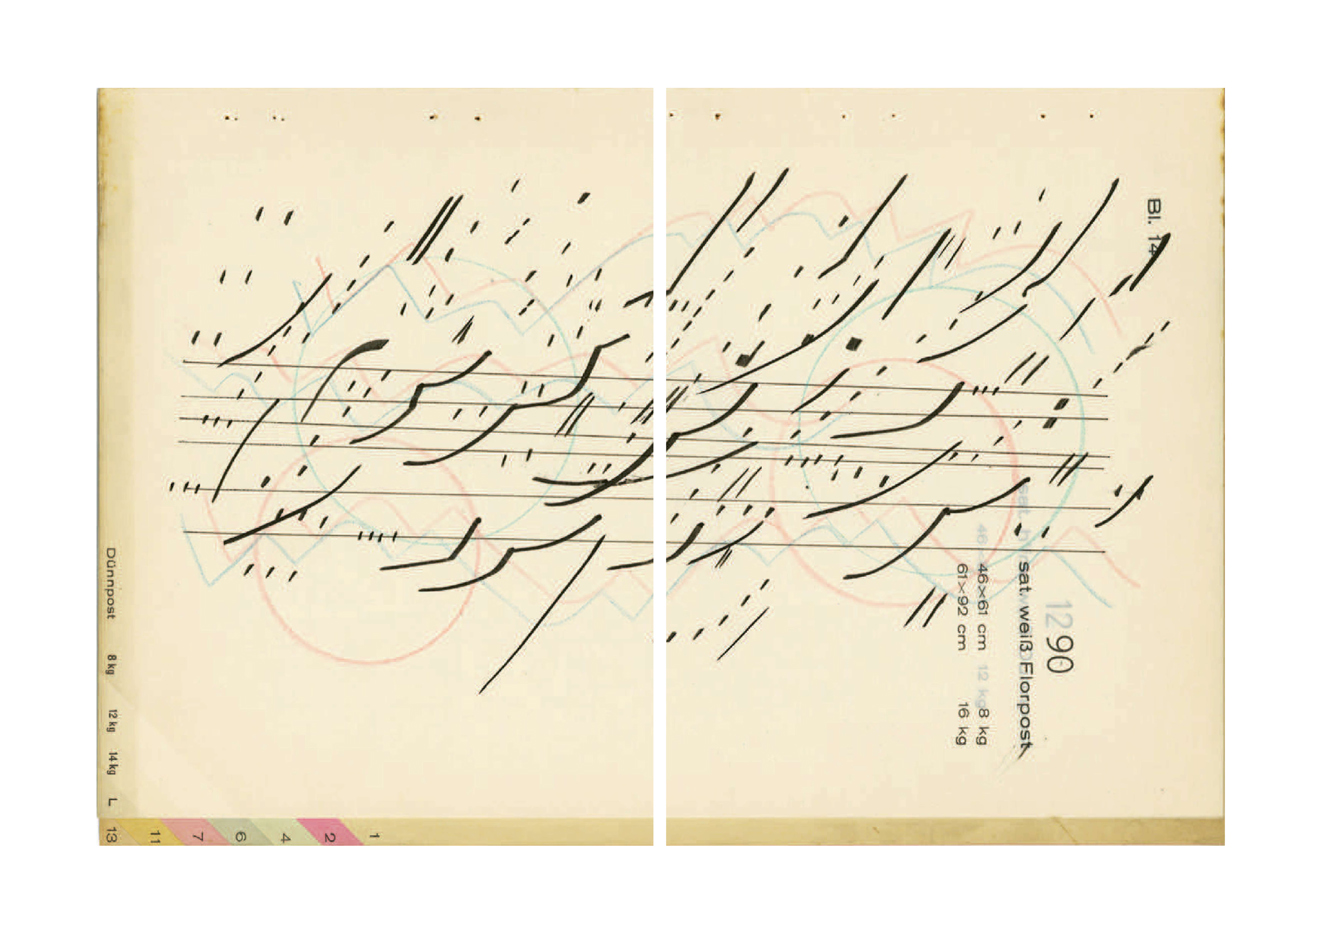 Bl. 14
1290
sat. weiß Florpost
46×61 cm 12 kg 8 kg
61×92 cm 16 kg
Dünnpost 8 kg 12 kg 14 kg L
13 11 7 6 4 2 1